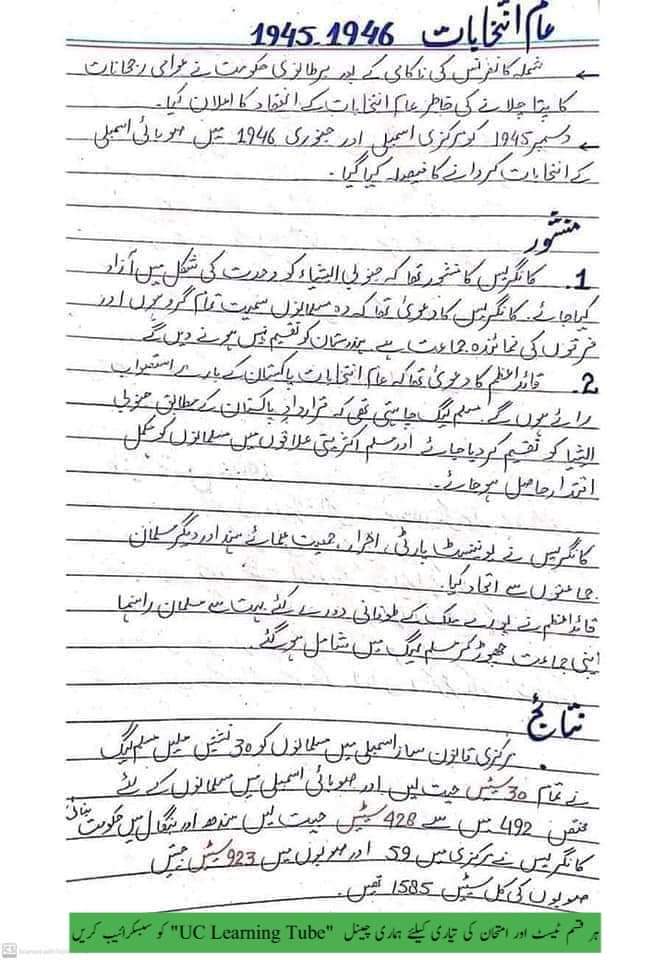 عام انتخابات 1945-1946
← شملہ کانفرنس کی ناکامی کے بعد برطانوی حکومت نے عوامی رجحانات
کا پتا چلانے کی خاطر عام انتخابات کے انعقاد کا اعلان کیا۔
← دسمبر 1945 کو مرکزی اسمبلی اور جنوری 1946 میں صوبائی اسمبلی
کے انتخابات کروانے کا فیصلہ کیا گیا۔
منشور
1. کانگریس کا منشور تھا کہ جنوبی ایشیاء کو وحدت کی شکل میں آزاد
کیا جائے۔ کانگریس کا دعویٰ تھا کہ وہ مسلمانوں سمیت تمام گروہوں اور
فرقوں کی نمائندہ جماعت ہے۔ ہندوستان کو تقسیم نہیں ہونے دیں گے
2. قائداعظم کا دعویٰ تھا کہ عام انتخابات پاکستان کے بارے استصواب
رائے ہوں گے۔ مسلم لیگ چاہتی تھی کہ قرارداد پاکستان کے مطابق جنوبی
ایشیا کو تقسیم کر دیا جائے اور مسلم اکثریتی علاقوں میں مسلمانوں کو مکمل
اقتدار حاصل ہو جائے۔
کانگریس نے یونینسٹ پارٹی، احرار، جمیت علمائے ہند اور دیگر مسلمان
جماعتوں سے اتحاد کیا۔
قائداعظم نے پورے ملک کے طوفانی دورے کئے بہت سے مسلمان راہنما
اپنی جماعت چھوڑ کر مسلم لیگ میں شامل ہو گئے۔
نتائج
. مرکزی قانون ساز اسمبلی میں مسلمانوں کو 30 نشتیں ملیں مسلم لیگ
نے تمام 30 سیٹیں جیت لیں اور صوبائی اسمبلی میں مسلمانوں کے لئے
مختص 492 میں سے 428 سیٹیں جیت لیں سندھ اور بنگال میں حکومت بنائی
کانگریس نے مرکزی میں 59 اور صوبوں میں 923 سیٹیں جیتیں
صوبوں کی کل سیٹیں 1585 تھیں۔
ہر قسم ٹیسٹ اور امتحان کی تیاری کیلئے ہماری چینل "UC Learning Tube" کو سبسکرائیب کریں